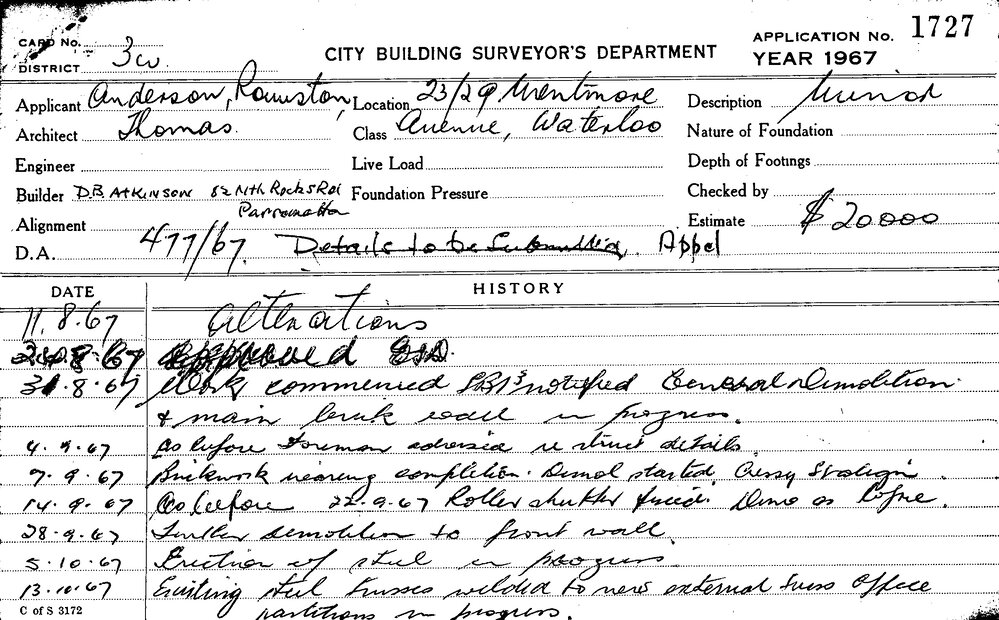 CARD No.
APPLICATION No. 1727
DISTRICT 3W
CITY BUILDING SURVEYOR'S DEPARTMENT
YEAR 1967
Applicant Anderson, Rowston, Location 23/29 Wentmore Description Minor
Architect Thomas. Class Avenue, Waterloo Nature of Foundation
Engineer Live Load Depth of Footings
Builder D.B. ATKINSON 82 Nth Rocks Rd Foundation Pressure Checked by
Parramatta
Alignment Estimate $20000
D.A. 477/67. Details to be Submitted. Appel
DATE HISTORY
11.8.67 Alterations
24.8.67 Approved
31.8.67 Work commenced notified General Demolition
& main brick wall in progress.
4.9.67 As before Foreman advised re struct details.
7.9.67 Brickwork nearing completion. Demol started.
14.9.67 As before 22.9.67 Roller shutter fixed. Demo as before.
28.9.67 Further demolition to front wall.
5.10.67 Erection of steel in progress
13.10.67 Existing steel trusses welded to new external truss Office
C of S 3172 partitions in progress.